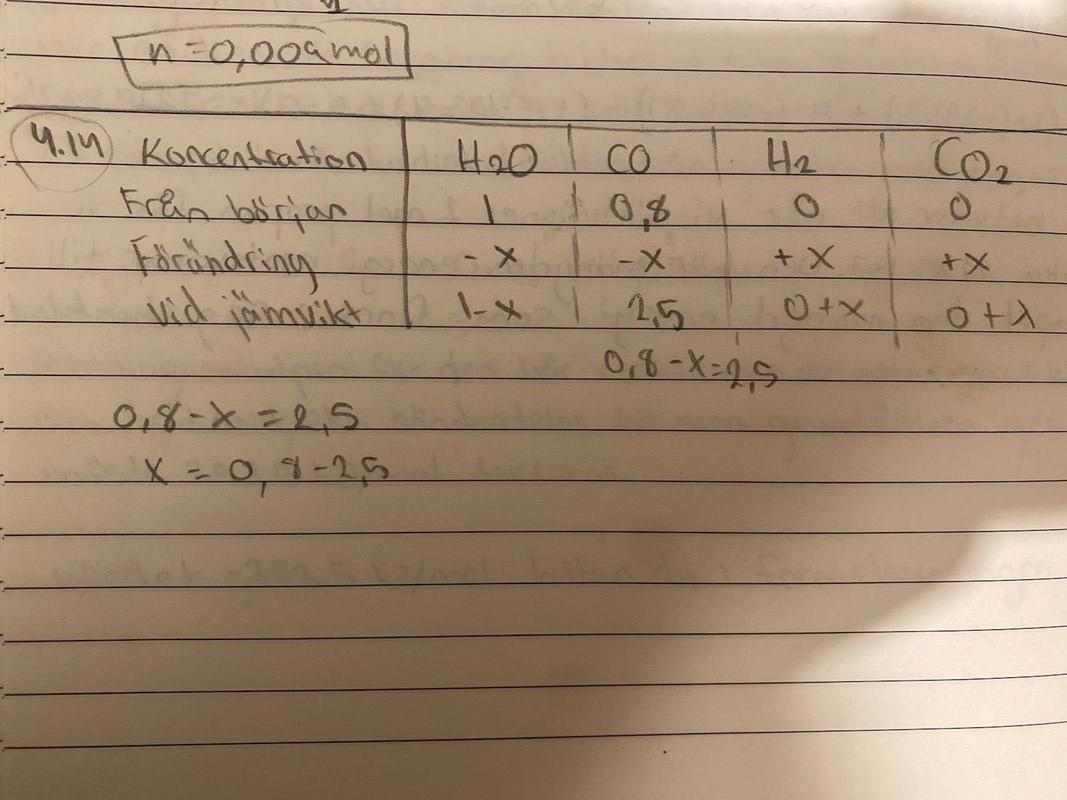 n = 0,009 mol
4.14 Koncentration H2O CO H2 CO2
Från början 1 0,8 0 0
Förändring - x - x + x + x
Vid jämvikt 1 - x 2,5 0 + x 0 + x
0,8 - x = 2,5
0,8 - x = 2,5
x = 0,8 - 2,5